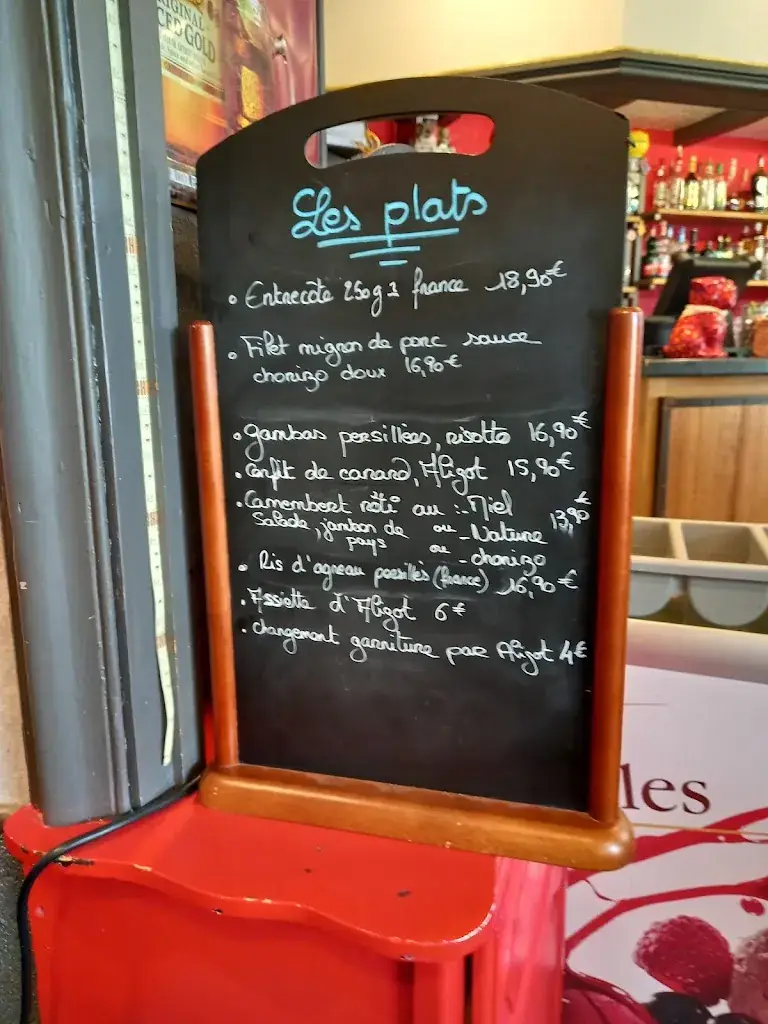 ORIGINAL
CED GOLD
Les plats
• Entrecôte 250g france 18,90€
• Filet mignon de porc sauce
chorizo doux 16,90€
• Gambas persillées, risotto 16,90€
• Confit de canard, Aligot 15,90€
• Camembert rôti au :- Miel 13,90€
Salade, jambon de ou - Nature
pays ou - chorizo
• Ris d'agneau persillés (france) 16,90€
• Assiette d'Aligot 6€
• changement garniture par Aligot 4€
les